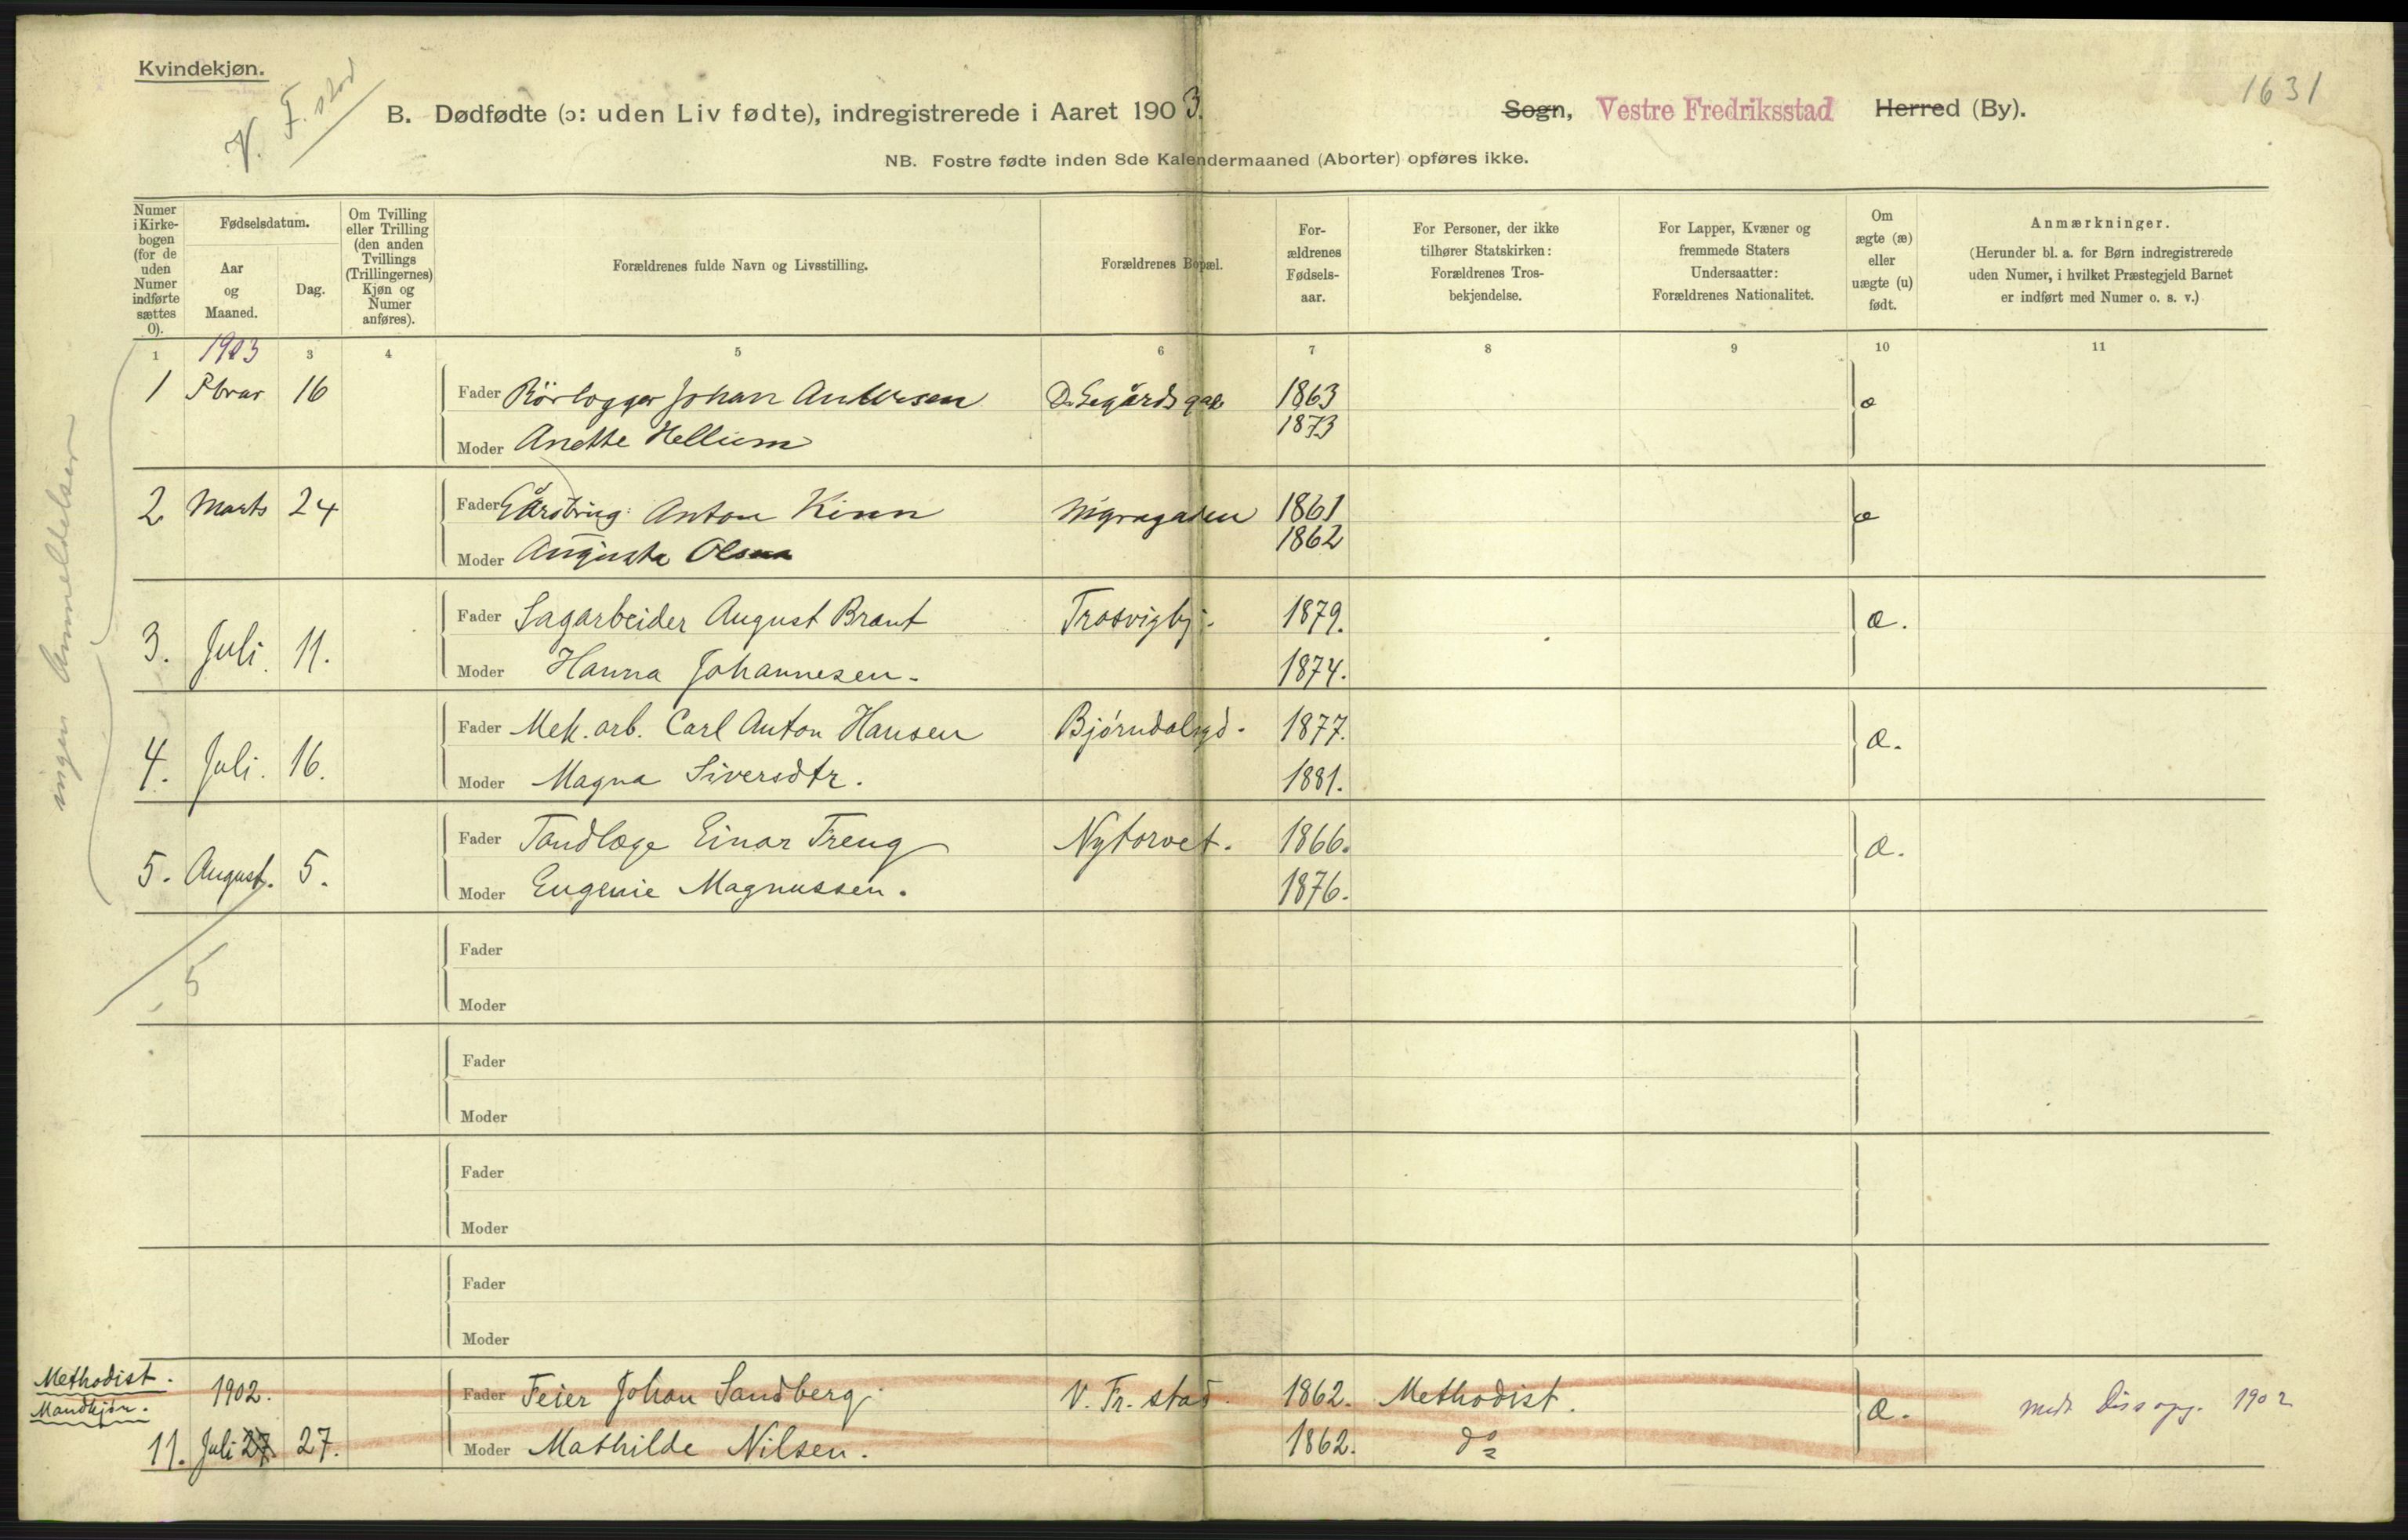 Kvindekjøn.
V. F. stad
1631
B. Dødfødte (ɔ: uden Liv fødte), indregistrerede i Aaret 1903. Sogn, Vestre Fredriksstad Herred (By).
NB. Fostre fødte inden 8de Kalendermaaned (Aborter) opføres ikke.
Numer
i Kirke-
bogen
(for de
uden
Numer
indførte
sættes
0).
Fødselsdatum.
Aar
og
Maaned.
Dag.
Om Tvilling
eller Trilling
(den anden
Tvillings
(Trillingernes)
Kjøn og
Numer
anføres).
Forældrenes fulde Navn og Livsstilling.
Forældrenes Bopæl.
For-
ældrenes
Fødsels-
aar.
For Personer, der ikke
tilhører Statskirken:
Forældrenes Tros-
bekjendelse.
For Lapper, Kvæner og
fremmede Staters
Undersaatter:
Forældrenes Nationalitet.
Om
ægte (æ)
eller
uægte (u)
født.
Anmærkninger.
(Herunder bl. a. for Børn indregistrerede
uden Numer, i hvilket Præstegjeld Barnet
er indført med Numer o. s. v.)
1 1903 3 4 5 6 7 8 9 10 11
ingen Anmeldelser
1 Fbrar 16 Fader Rørlægger Johan Andersen 1863 æ
Moder Anette Hellum 1873
2 Marts 24 Fader Anton Kinn 1861 æ
Moder Augusta Olsen 1862
Fader Sagarbeider August Brant Trosvigbj. 1879. æ.
3. Juli. 11.
Moder Hanna Johannesen. 1874.
Fader Mek. arb. Carl Anton Hansen Bjørndalsgd. 1877. æ.
4. Juli. 16.
Moder Magna Siversdtr. 1881.
Fader Tandlæge Einar Treng Nytorvet. 1866. æ.
5. August. 5.
Moder Eugenie Magnussen. 1876.
Fader
5
Moder
Fader
Moder
Fader
Moder
Fader
Moder
Methodist.
Mandkjøn.
1902. Fader Feier Johan Sandberg. V. Fr. stad. 1862. Methodist. æ. 1902
11. Juli 27 27. Moder Mathilde Nilsen. 1862. do